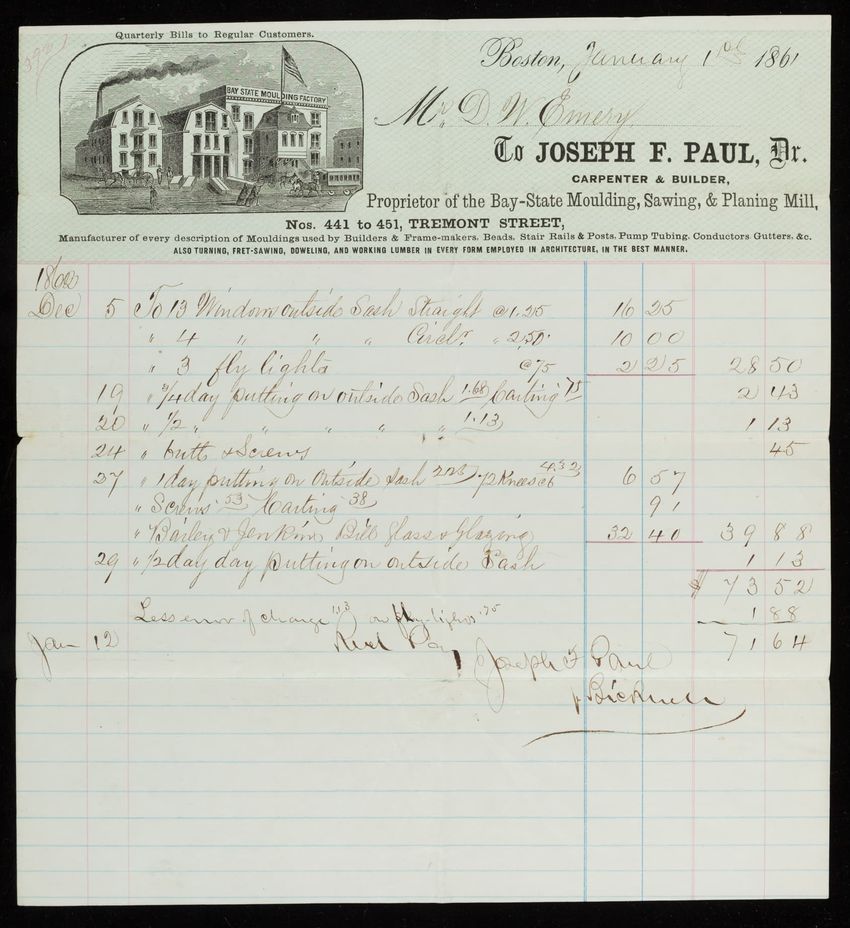 Quarterly Bills to Regular Customers.
BAY STATE MOULDING FACTORY
Boston, January 1st 1861
Mr. D. W. Emery
To JOSEPH F. PAUL, Dr.
CARPENTER & BUILDER,
Proprietor of the Bay-State Moulding, Sawing, & Planing Mill,
Nos. 441 to 451, TREMONT STREET,
Manufacturer of every description of Mouldings used by Builders & Frame-makers. Beads. Stair Rails & Posts. Pump Tubing. Conductors. Gutters. &c.
ALSO TURNING, FRET-SAWING, DOWELING, AND WORKING LUMBER IN EVERY FORM EMPLOYED IN ARCHITECTURE, IN THE BEST MANNER.
1860
Dec 5 To 13 Window outside Sash Straight @ 1.25 16 25
" 4 " " " Circlr. " 2.50 10 00
" 3 fly lights @ 75 2 25 28 50
19 " 3/4 day putting on outside Sash 1.68 Carting 75 2 43
20 " 1/2 " " " " " 1.13 1 13
24 " butts & Screws 45
27 " 1 day putting on outside Sash 2.25 72 Knees @ 6 4.32 6 57
" Screws 53 Carting 38 91
" Bailey & Jenkins Bill Glass & Glazing 32 40 39 88
29 " 1/2 day day putting on outside Sash 1 13
$ 73 52
Less error of charge 1.13 on fly lights .75 1 88
Jan 12 Recd Pay 71 64
Joseph F Paul
Bicknell